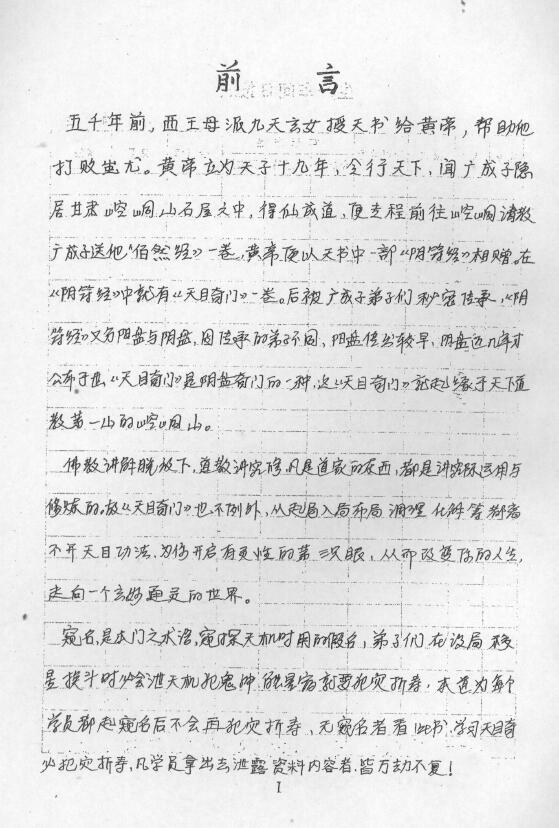 前言
五千年前，西王母派九天玄女授天书给黄帝，帮助他
打败蚩尤。黄帝立为天子十九年，令行天下，闻广成子隐
居甘肃崆峒山石屋之中，得仙成道，便起程前往崆峒请教
广成子送他“自然经》一卷，黄帝便以天书中一部《阴符经》相赠。在
《阴符经》中就有《天目奇门》一卷。后被广成子弟子们秘密传承，《阴
符经》又分阳盘与阴盘，因传承的弟子不同，阳盘传出较早，阴盘近几年才
公布于世，《天目奇门》是阴盘奇门的一种，这《天目奇门》就起缘于天下道
教第一山的崆峒山。
佛教讲解脱放下，道教讲究修，凡是道家的东西，都是讲实际运用与
修炼的。故《天目奇门》也不例外，从起局入局布局调理化解等都离
不开天目功法，为你开启有灵性的第三只眼，从而改变你的人生，
走向一个玄妙通灵的世界。
窥名，是本门之术语，窥探天机时用的假名，弟子们在设局移
星换斗时必会泄天机犯鬼神，就要犯灾折寿，本道为每个
学员都起窥名后不会再犯灾折寿，无窥名者看此书，学习天目奇
必犯灾折寿，凡学员拿出去泄露资料内容者，皆万劫不复！
1